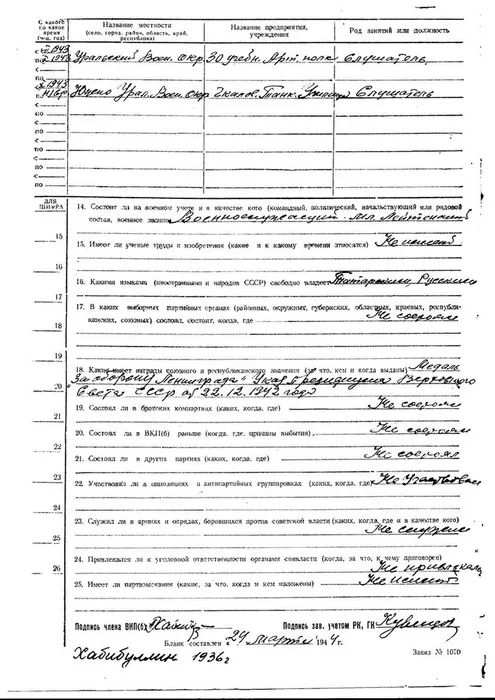 С какого по какое время (м-ц, год)
Название местности (село, город, район, область, край, республика)
Название предприятия, учреждения
Род занятий или должность
с 1943
по 1943 Уральский Воен. Окр. 30 учебн. Арт. полк Слушатель
с 1943
по Южно Урал. Воен. Окр. Чкалов. Танк. Училище Слушатель
с
по
с
по
с
по
с
по
ДЛЯ ШИФРА
14. Состоит ли на военном учете и в качестве кого (командный, политический, начальствующий или рядовой
состав, военное звание) Военнослужащий мл. Лейтенант
15
15. Имеет ли ученые труды и изобретения (какие и к какому времени относятся) Не имеет
16
16. Какими языками (иностранными и народов СССР) свободно владеет Татарским Русским
17
17. В каких выборных партийных органах (районных, окружных, губернских, областных, краевых, республи-
канских, союзных) состоял, состоит, когда, где Не состоял
18
19
18. Какие имеет награды союзного и республиканского значения (за что, кем и когда выданы) Медаль
20
„За оборону Ленинграда" Указ Президиума Верховного
Совета СССР от 22.12.1942 года
19. Состоял ли в братских компартиях (каких, когда, где) Не состоял
21
20. Состоял ли в ВКП(б) раньше (когда, где, причины выбытия) Не состоял
22
21. Состоял ли в других партиях (каких, когда, где) Не состоял
23
22. Участвовал ли в оппозициях и антипартийных группировках (каких, когда, где) Не участвовал
24
23. Служил ли в армиях и отрядах, боровшихся против советской власти (каких, когда, где и в качестве кого)
Не служил
25
24. Привлекался ли к уголовной ответственности органами соввласти (когда, за что, к чему приговорен)
26
Не привлекался
25. Имеет ли партвзыскания (какие, за что, когда и кем наложены) Не имеет
Подпись члена ВКП(б) Подпись зав. учетом РК, ГК
Бланк составлен „29 Марта 1944 г.
Хабибуллин 1936 г
Заказ № 1070